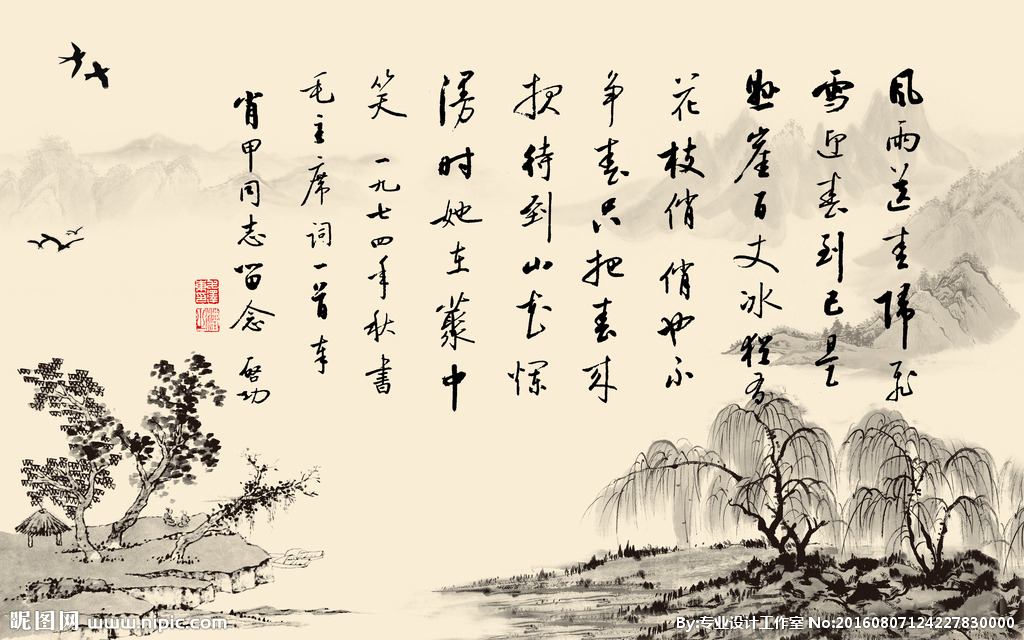 风雨送春归飞
雪迎春到已是
悬崖百丈冰犹有
花枝俏 俏也不
争春只把春来
报待到山花烂
漫时她在叢中
笑 一九七四年秋書
毛主席词一首奉
肖甲同志留念 启功
昵图网 www.nipic.com
By:专业设计工作室 No:20160807124227830000